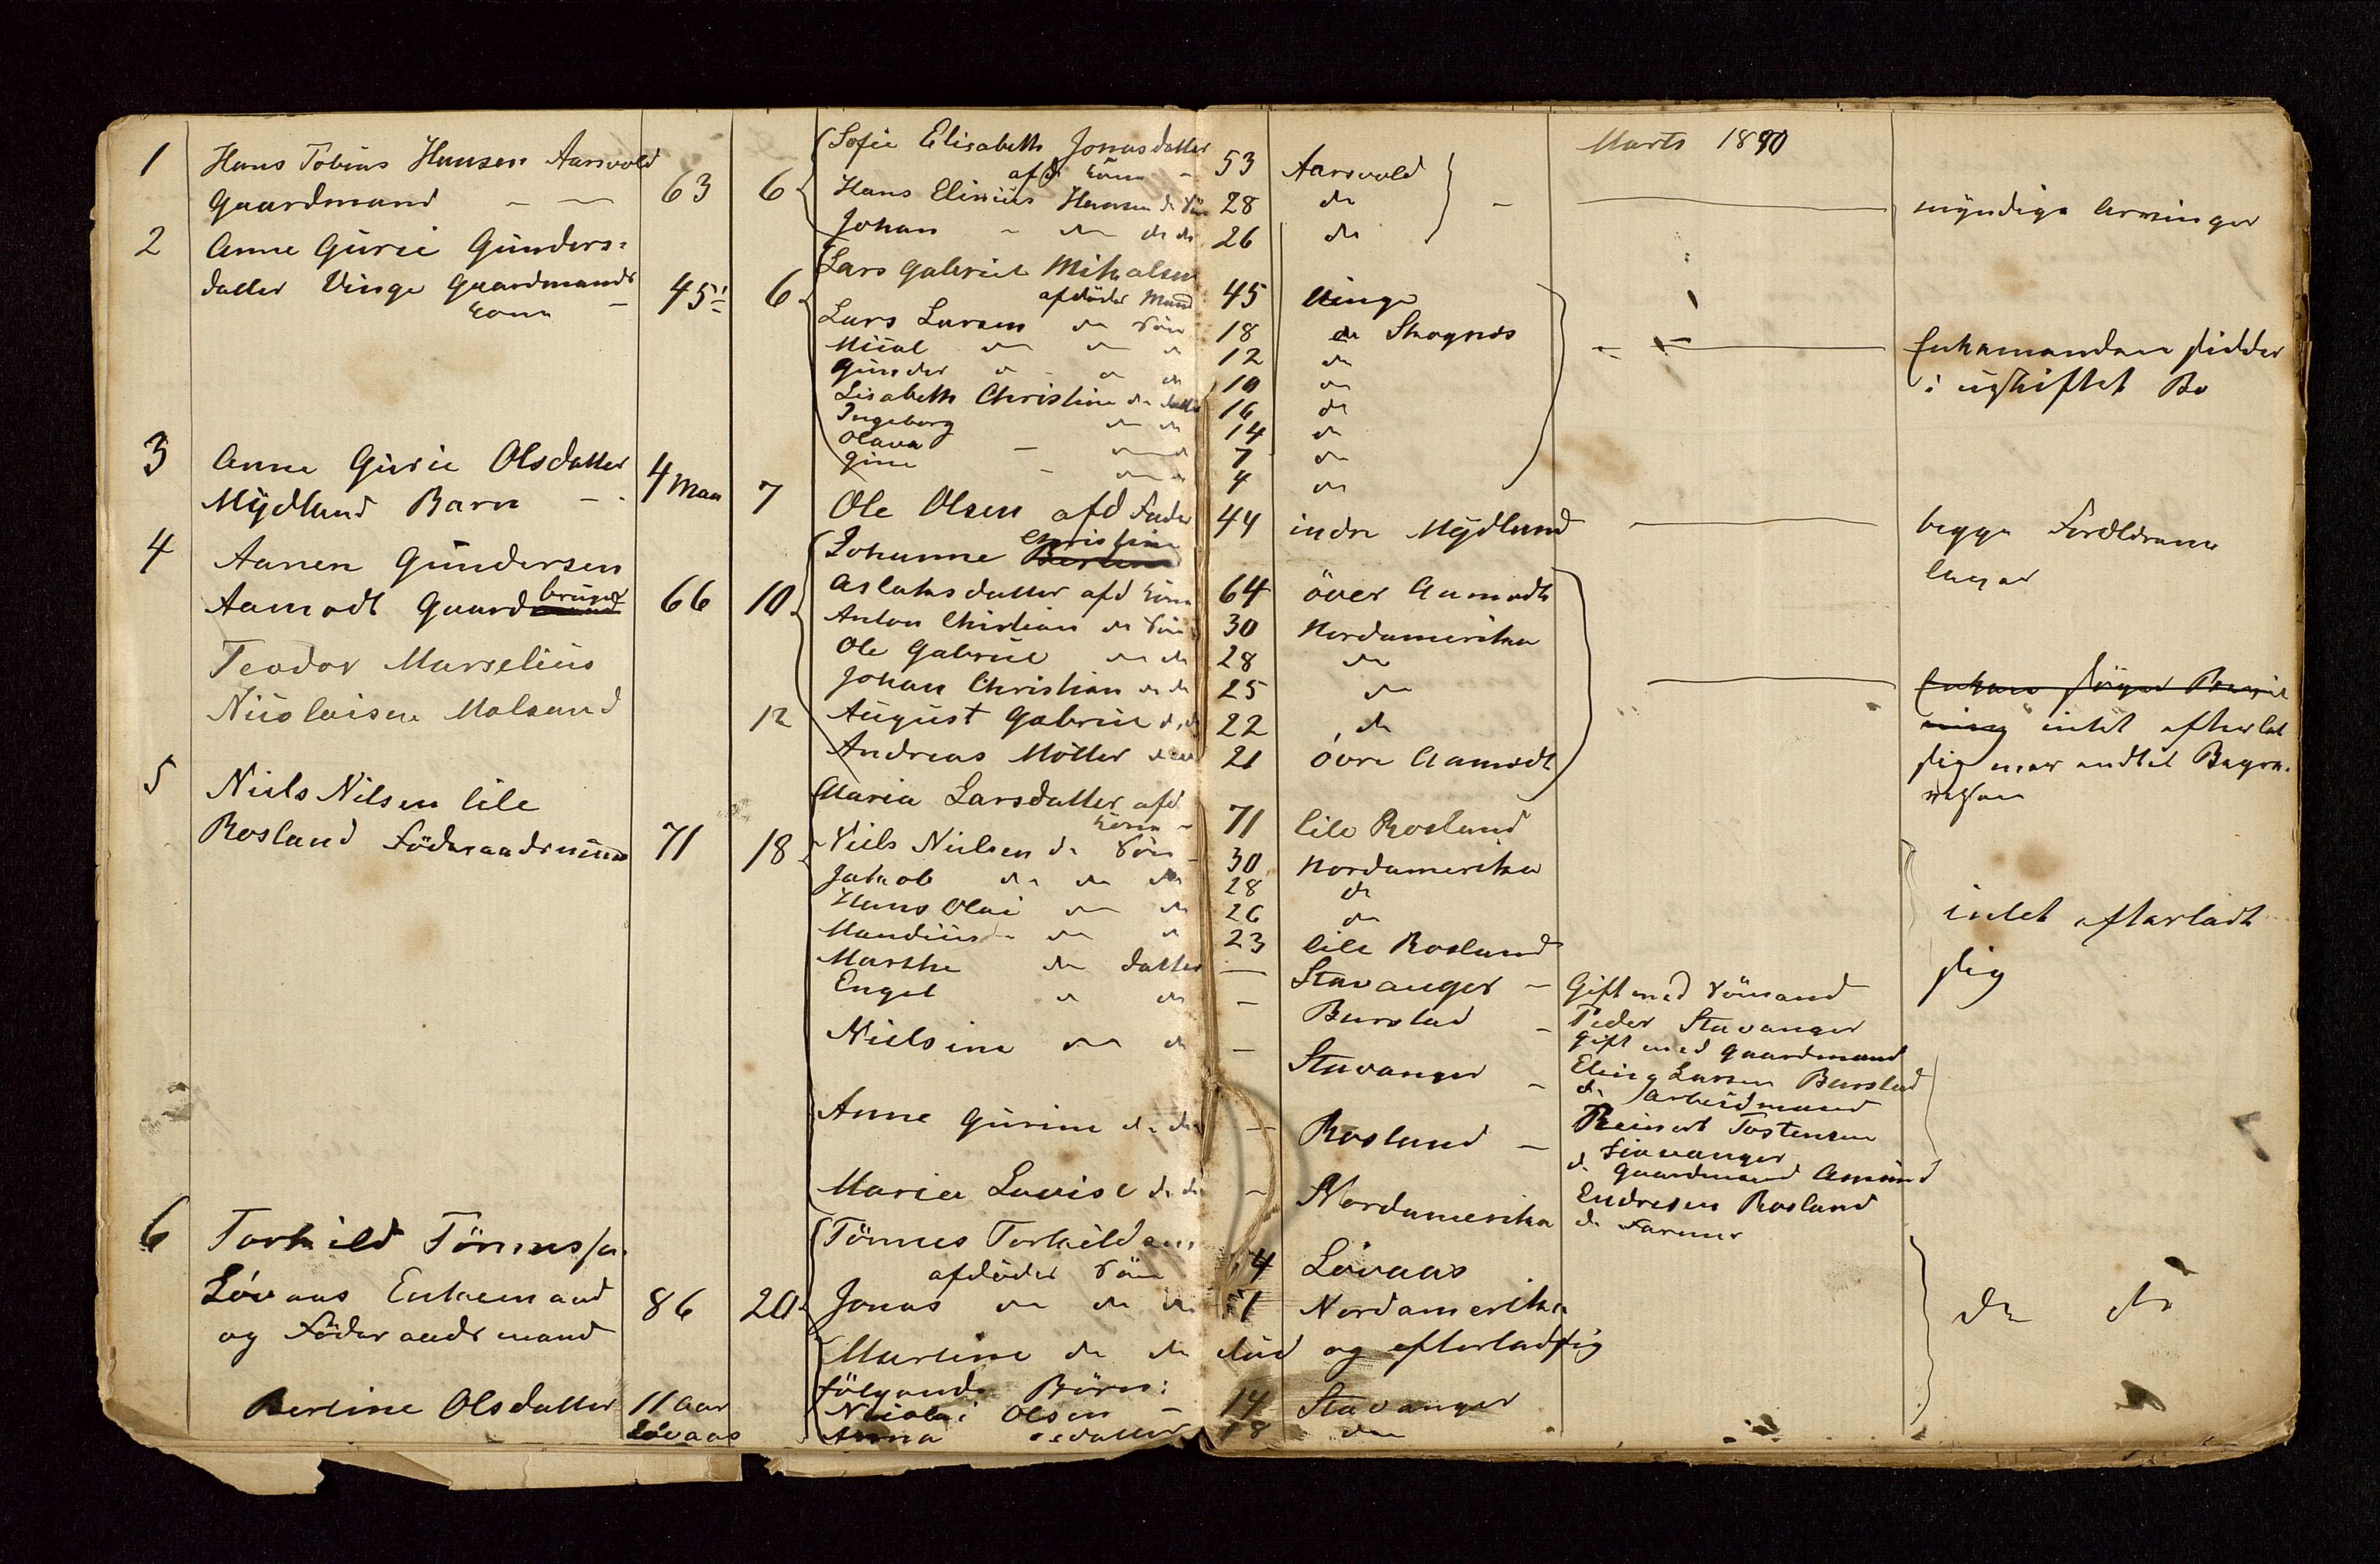 Marts 1890
1 Hans Tobias Hansen Aarsvold
Gaardmand — — 63 6
Sofie Elisabeth Jonasdatter
afd. Kone - 53 Aarsvold
Hans Elinius Hansen do Søn 28 do
Johan - do do do 26 do
myndige Arvinger
2 Anne Gurie Gunders-
datter Vinge Gaardmands
Kone — 45 6
Lars Gabriel Mikalsen
afdödes Mand 45 Vinge
Lars Larsen do Søn 18 do Skognes
Mical do do do 12 do
Gunder do do do 10 do
Lisabeth Christine do datter 16 do
Ingeborg do do 14 do
Olava — do do 7 do
Gine - do do 4 do
Enkemanden sidder
i uskiftet Bo
3 Anne Gurie Olsdatter
Mydland Barn — 4 Maa 7
Ole Olsen afd Fader 44 indre Mydland
begge Forældrene
lever
4 Aanen Gundersen
Aamodt Gaardbruger 66 10
Johanne Christine
Aslaksdatter afd Kone 64 över Aamodt
Anton Christian do Søn 30 Nordamerika
Ole Gabriel do do 28 do
Johan Christian do do 25 do
August Gabriel do do 22 do
Andreas Möller do do 21 övre Aamodt
Enken
intet efterlat
sig
Teodor Marselius
Nicolaisen Molaund 12
5 Niels Nilsen lile
Rosland Föderaadsmand 71 18
Maria Larsdatter afd.
Kone - 71 lile Rosland
Niels Nielsen do Søn - 30 Nordamerika
Jakob do do do 28 do
Hans Olai do do 26 do
Mandius do do do 23 lile Rosland
Marthe do datter — Stavanger -
Engel do do - Burstad -
Nielsine do do — Stavanger -
Anne Gurine do do — Rosland -
Maria Lovise do do - Nordamerika
Gift med Sömand
Peder Stavanger
Gift med Gaardmand
Eling Larsen Burstad
do Arbeidmand
Reinert Tostensen
Stavanger
do Gaardmand Amund
Endresen Rosland
do Farmer
intet efterladt
sig
6 Torkild Tönnessen
Lövaas Enkemand
og Föderaadsmand 86 20
Tönnes Torkildsen
afdödes Søn 54 Lövaas
Jonas do do do 51 Nordamerika
Martine do do död og efterlad sig
følgende Børn:
Nicolai Olsen — 14 Stavanger
Anna Olsdatter 18 do
do do
Berline Olsdatter 11 Aar
Lövaas